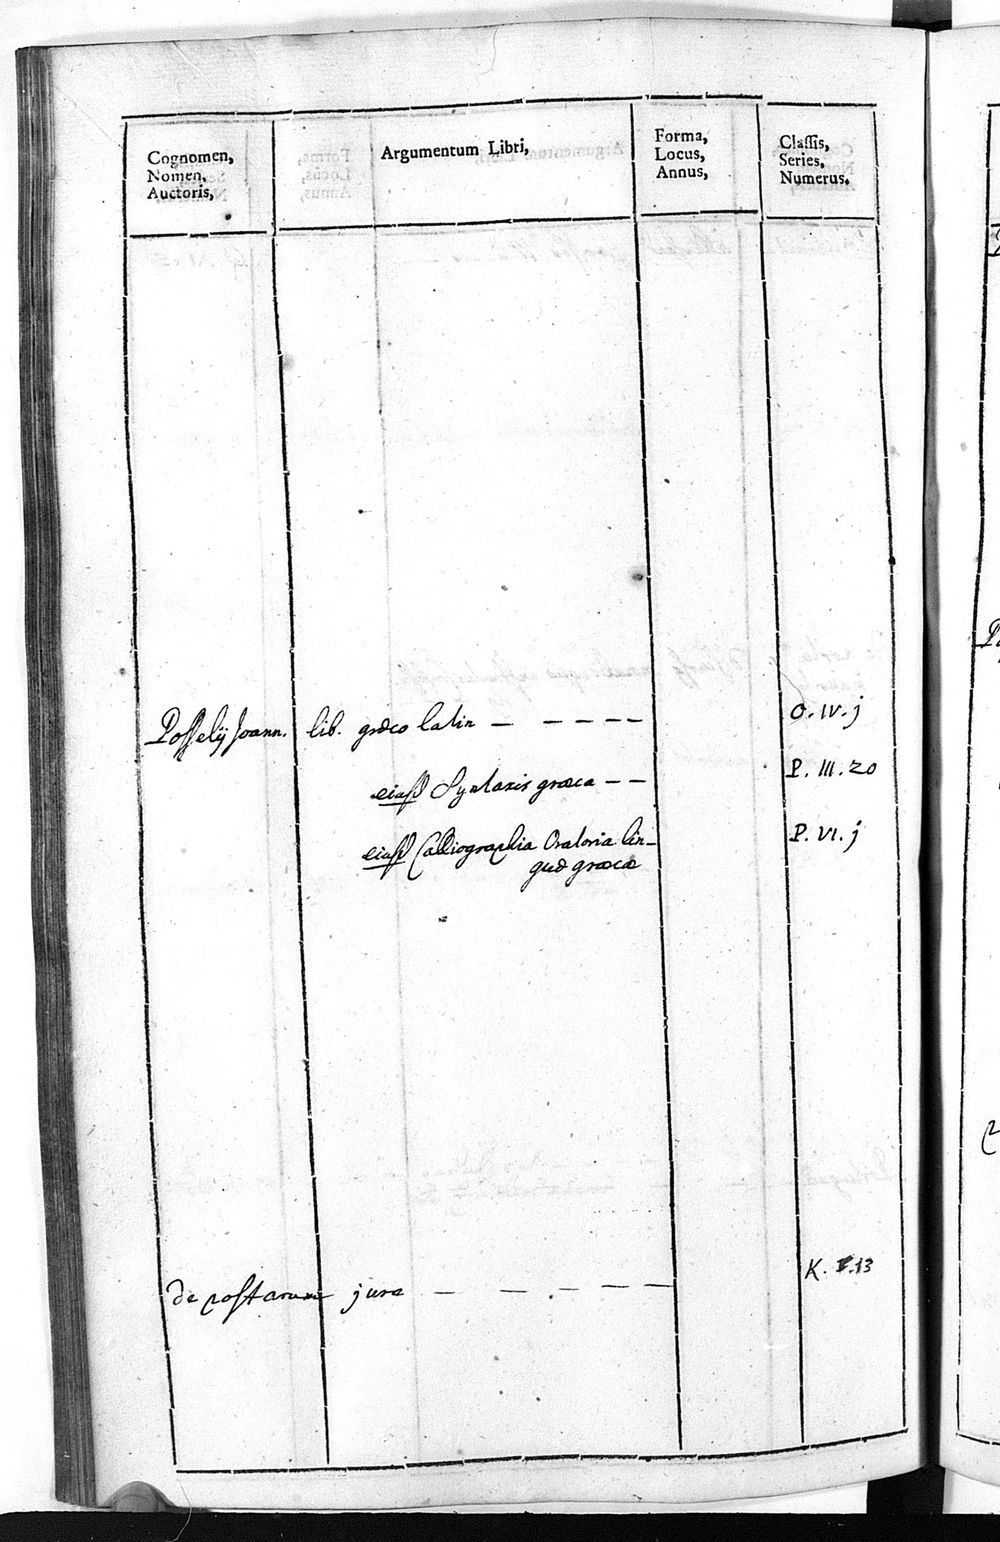 Cognomen,
Nomen,
Auctoris,
Argumentum Libri,
Forma,
Locus,
Annus,
Classis,
Series,
Numerus.
Posselij Joann. lib. græco latin — — — — — O. IV. j
eiusd Syntaxis græca — — P. III. 20
eiusd Calliographia Oratoria lin-
guæ græcæ P. VI. j
de postarum jure — — — — — K. V. 13